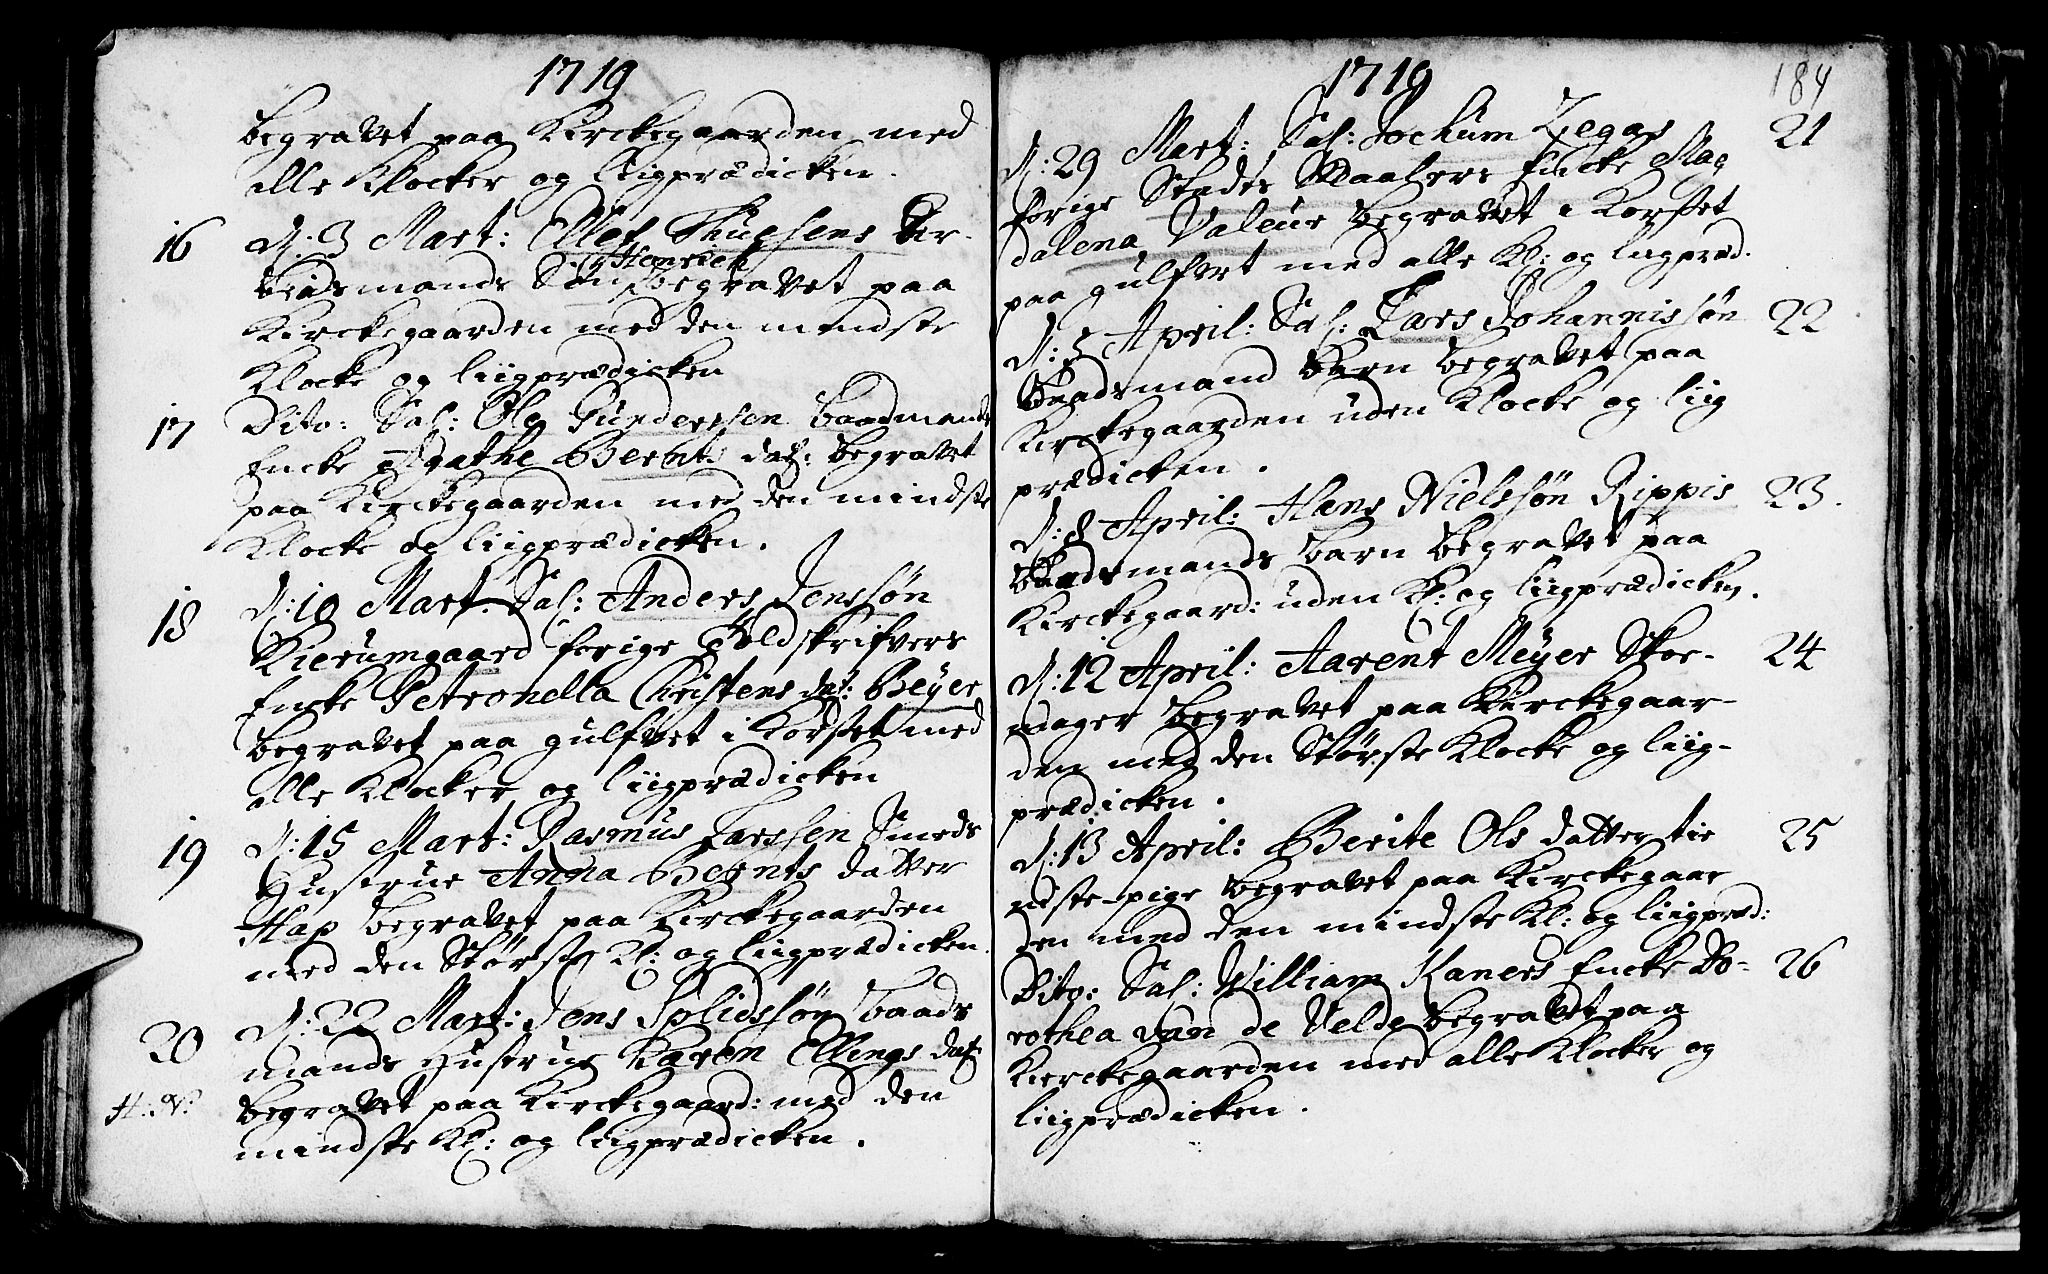 1719
begravet paa Kirckegaarden med
alle Klocker og liigprædicken.
16 d: 3 Mart: Ellef Thuesens Ar-
beidsmands Søn Henrich begravet paa
Kirckegaarden med den mindste
Klocke og liigprædicken
17 Dito: Sal: Ole Gunderssen baadsmands
Encke Agathe Bernts dat: begravet
paa Kirckegaarden med den mindste
Klocke og liigprædicken.
18 d: 10 Mart. Sal: Anders Jenssøn
Kierumgaard forige Toldskrifvers
Encke Petronella Christens dat: Beyer
begravet paa gulfvet i Korsset med
alle Klocker og liigprædicken
19 d: 15 Mart: Rasmus Larssen Smeds
Hustrue Anna Bernts datter
Hap begravet paa Kirckegaarden
med den Største Kl: og liigprædicken.
20 d: 22 Mart: Jens Splidssøn baads
mands Hustrue Karen Ellings dat
H: N: begravet paa Kirckegaard: med den
mindste Kl: og liigprædicken.
1719
184
d: 29 Mart: Sal: Jochum Legas 21
forige Stads Maalers Encke Mag
dalena Valeur begravet i Korsset
paa gulfvet med alle Kl: og liigpræd.
d: 5 April: Sal: Lars Johannissøn 22
Baadsmand barn begravet paa
Kirckegaarden uden Klocke og liig
prædicken.
d: 8 April: Hans Nielssøn Rippis 23.
Baadsmands barn begravet paa
Kirckegaard: uden Kl: og liigprædicken.
d: 12 April: Aarent Meyer Skoe- 24
mager begravet paa Kirckegaar-
den med den Største Klocke og liig-
prædicken.
d: 13 April: Berite Ols datter tie 25
niste pige begravet paa Kirckegaar
den med den mindste Kl: og liigpræd:
Dito: Sal: William Kaners Encke Do- 26
rothea van de Velde begravet paa
Kirckegaarden med alle Klocker og
liigprædicken.